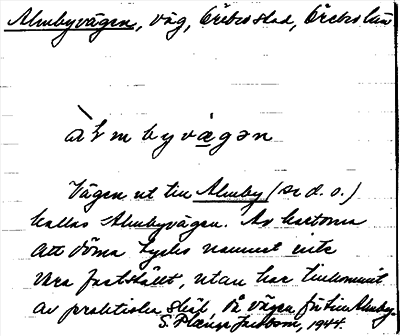 Almbyvägen, väg, Örebro stad, Örebro län
àlmbyvägən
Vägen ut till Almby (se d. o.)
kallas Almbyvägen. Av kartorna
att döma tycks namnet inte
vara fastställt, utan har tillkommit
av praktiska skäl, då vägen för till Almby.
S. 1944.